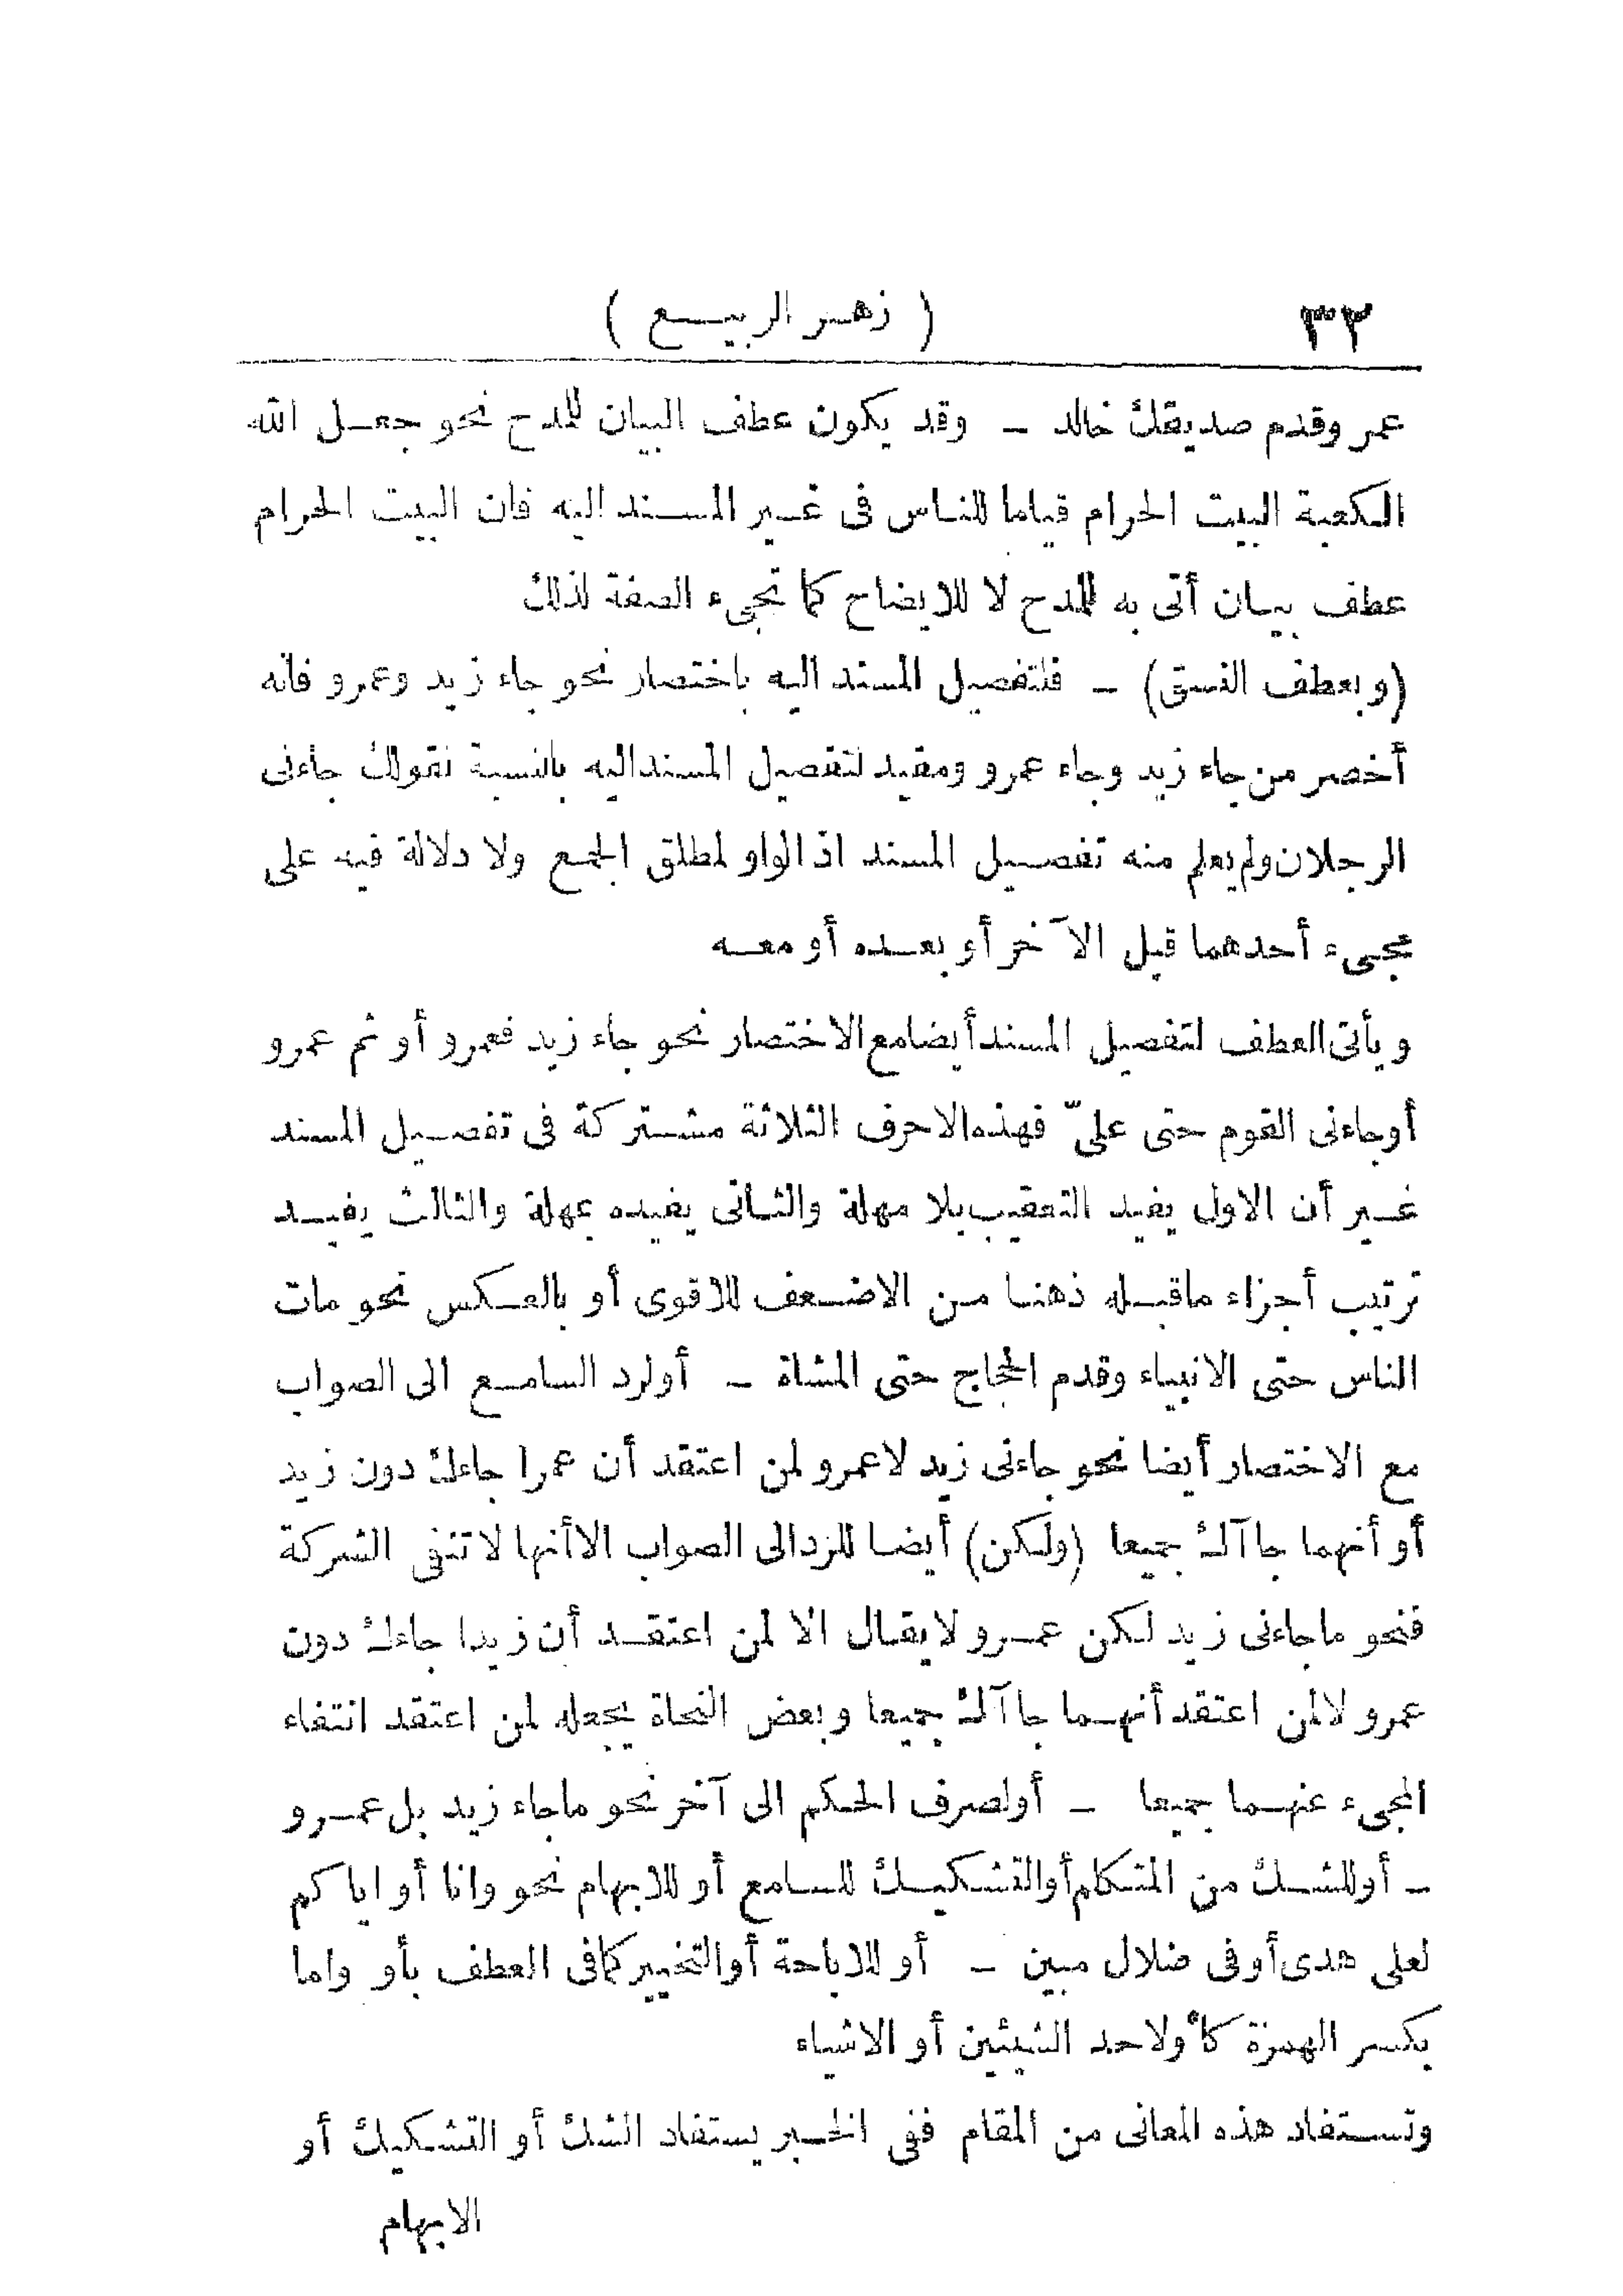 ٣٢ ( زهر الربيع )
عمر وقدم صديقك خالد - وقد يكون عطف البيان للمدح نحو جعل الله
الكعبة البيت الحرام قياما للناس فى غير المسند اليه فان البيت الحرام
عطف بيان أتى به للمدح لا للايضاح كما تجىء الصفة لذلك
(وبعطف النسق) - فلتفصيل المسند اليه باختصار نحو جاء زيد وعمرو فانه
أخصر من جاء زيد وجاء عمرو ومفيد لتفصيل المسند اليه بالنسبة لقولك جاءنى
الرجلان ولم يعلم منه تفصيل المسند اذ الواو لمطلق الجمع ولا دلالة فيه على
مجىء أحدهما قبل الآخر أو بعده أو معه
ويأتى العطف لتفصيل المسند أيضا مع الاختصار نحو جاء زيد فعمرو أو ثم عمرو
أوجاءنى القوم حتى علىّ فهذه الاحرف الثلاثة مشتركة فى تفصيل المسند
غير أن الاول يفيد التعقيب بلا مهلة والثانى يفيده بمهلة والثالث يفيد
ترتيب أجزاء ماقبله ذهنا من الاضعف للاقوى أو بالعكس نحو مات
الناس حتى الانبياء وقدم الحجاج حتى المشاة - أولرد السامع الى الصواب
مع الاختصار أيضا نحو جاءنى زيد لاعمرو لمن اعتقد أن عمرا جاءك دون زيد
أو أنهما جاآك جميعا (ولكن) أيضا للرد الى الصواب الا أنها لا تنفى الشركة
فنحو ماجاءنى زيد لكن عمرو لا يقال الا لمن اعتقد أن زيدا جاءك دون
عمرو لا لمن اعتقد أنهما جاآك جميعا وبعض النحاة يجعله لمن اعتقد انتفاء
المجىء عنهما جميعا - أولصرف الحكم الى آخر نحو ماجاء زيد بل عمرو
- أوللشك من المتكلم أوالتشكيك للسامع أو للابهام نحو وانا أو اياكم
لعلى هدى أو فى ضلال مبين - أو للاباحة أوالتخيير كمافى العطف بأو واما
بكسر الهمزة كأولاحد الشيئين أو الاشياء
وتستفاد هذه المعانى من المقام ففى الخبر يستفاد الشك أو التشكيك أو
الابهام